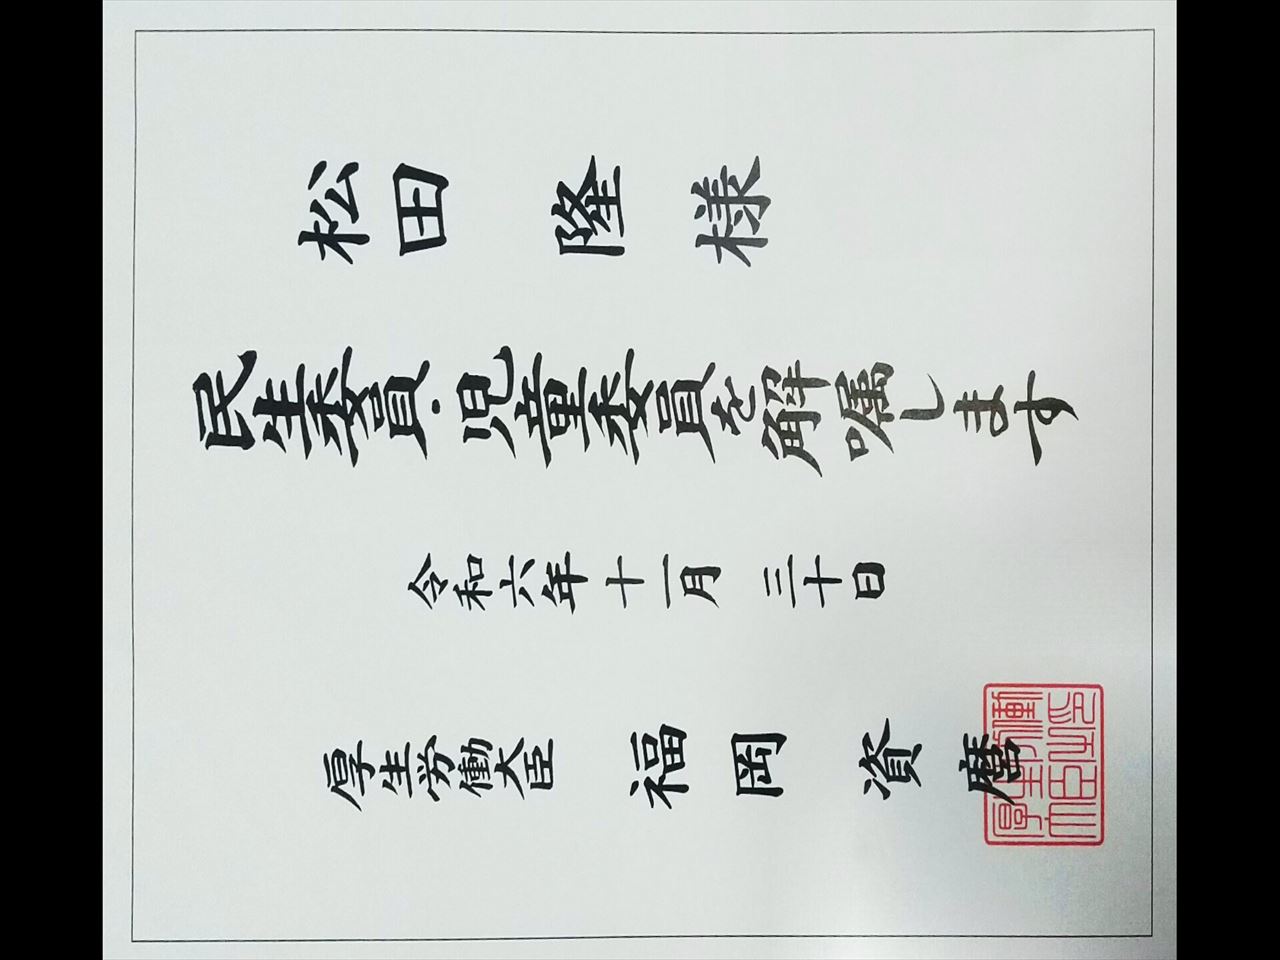 松田 隆 様
民生委員・児童委員を解嘱します
令和六年十一月三十日
厚生労働大臣 福岡 資麿
厚生労働大臣之印